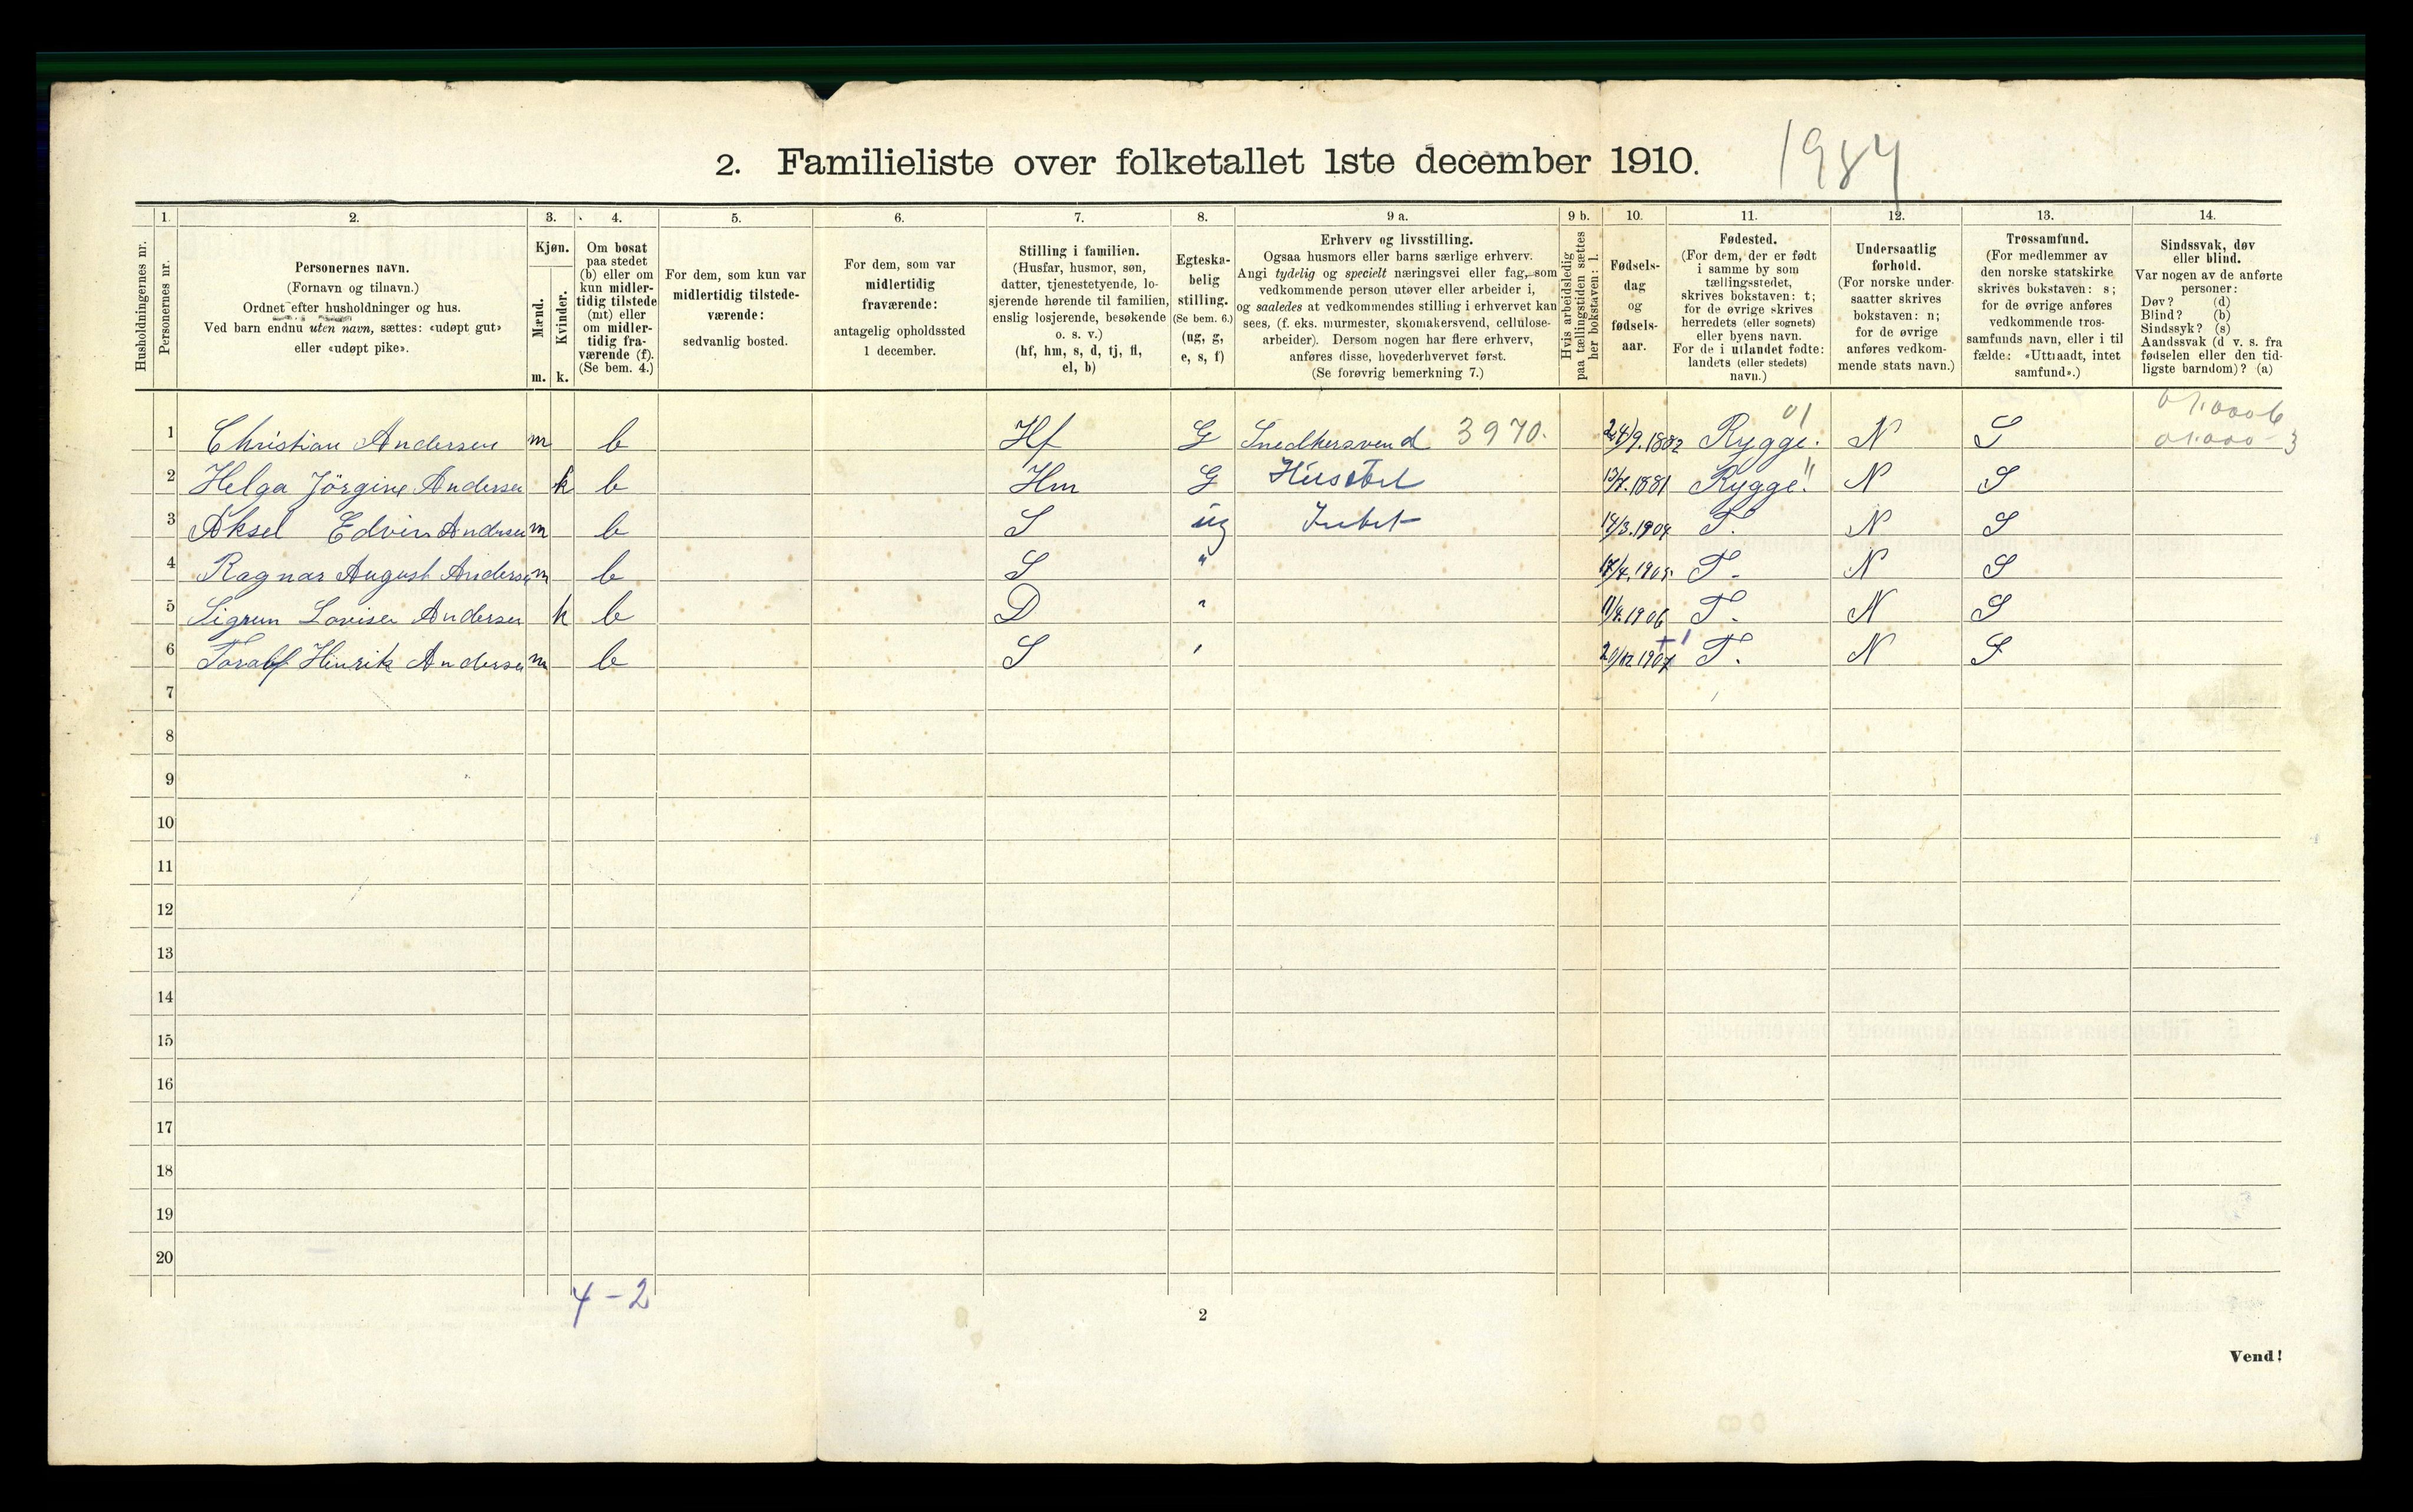 2. Familieliste over folketallet 1ste december 1910. 1984
1. 2. 3. 4. 5. 6. 7. 8. 9 a. 9 b. 10. 11. 12. 13. 14.
Husholdningernes nr.
Personernes nr.
Personernes navn.
(Fornavn og tilnavn.)
Ordnet efter husholdninger og hus.
Ved barn endnu uten navn, sættes: «udøpt gut»
eller «udøpt pike».
Kjøn.
Mænd.
Kvinder.
m. k.
Om bosat
paa stedet
(b) eller om
kun midler-
tidig tilstede
(mt) eller
om midler-
tidig fra-
værende (f).
(Se bem. 4.)
For dem, som kun var
midlertidig tilstede-
værende:
sedvanlig bosted.
For dem, som var
midlertidig
fraværende:
antagelig opholdssted
1 december.
Stilling i familien.
(Husfar, husmor, søn,
datter, tjenestetyende, lo-
sjerende hørende til familien,
enslig losjerende, besøkende
o. s. v.)
(hf, hm, s, d, tj, fl,
el, b)
Egteska-
belig
stilling.
(Se bem. 6.)
(ug, g,
e, s, f)
Erhverv og livsstilling.
Ogsaa husmors eller barns særlige erhverv.
Angi tydelig og specielt næringsvei eller fag, som
vedkommende person utøver eller arbeider i,
og saaledes at vedkommendes stilling i erhvervet kan
sees, (f. eks. murmester, skomakersvend, cellulose-
arbeider). Dersom nogen har flere erhverv,
anføres disse, hovederhvervet først.
(Se forøvrig bemerkning 7.)
Hvis arbeidsledig
paa tællingstiden sættes
her bokstaven: l.
Fødsels-
dag
og
fødsels-
aar.
Fødested.
(For dem, der er født
i samme by som
tællingsstedet,
skrives bokstaven: t;
for de øvrige skrives
herredets (eller sognets)
eller byens navn.
For de i utlandet fødte:
landets (eller stedets)
navn.)
Undersaatlig
forhold.
(For norske under-
saatter skrives
bokstaven: n;
for de øvrige
anføres vedkom-
mende stats navn.)
Trossamfund.
(For medlemmer av
den norske statskirke
skrives bokstaven: s;
for de øvrige anføres
vedkommende tros-
samfunds navn, eller i til
fælde: «Uttraadt, intet
samfund».)
Sindssvak, døv
eller blind.
Var nogen av de anførte
personer:
Døv? (d)
Blind? (b)
Sindssyk? (s)
Aandssvak (d v. s. fra
fødselen eller den tid-
ligste barndom)? (a)
1 Christian Andersen m b Hf G Snedkersvend 3970. 24/9.1882 Rygge. N S
2 Helga Jörgine Andersen k b Hm G Husstel 1881 Rygge. N S
3 Aksel Edvin Andersen m b S ug Intet 14/3.1904 T. N S
4 Ragnar August Andersen m b S " 1905 T. N S
5 Sigrun Lovise Andersen k b D " 1906 T. N S
6 Toralf Hinrik Andersen m b S 20/12 1907 T. N S
7
8
9
10
11
12
13
14
15
16
17
18
19
20
4-2
2
Vend!